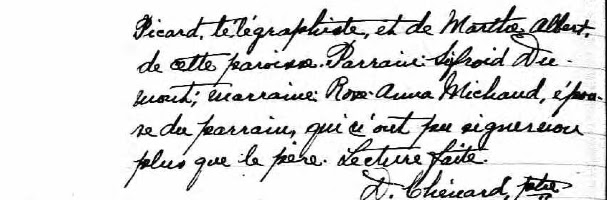 Picard, télégraphiste, et de Marthe Albert,
de cette paroisse. Parrain: Sifroid Du-
mont; marraine: Rose-Anna Michaud, épou-
se du parrain, qui n'ont pu signer non
plus que le père. Lecture faite.
D. Chénard, ptre